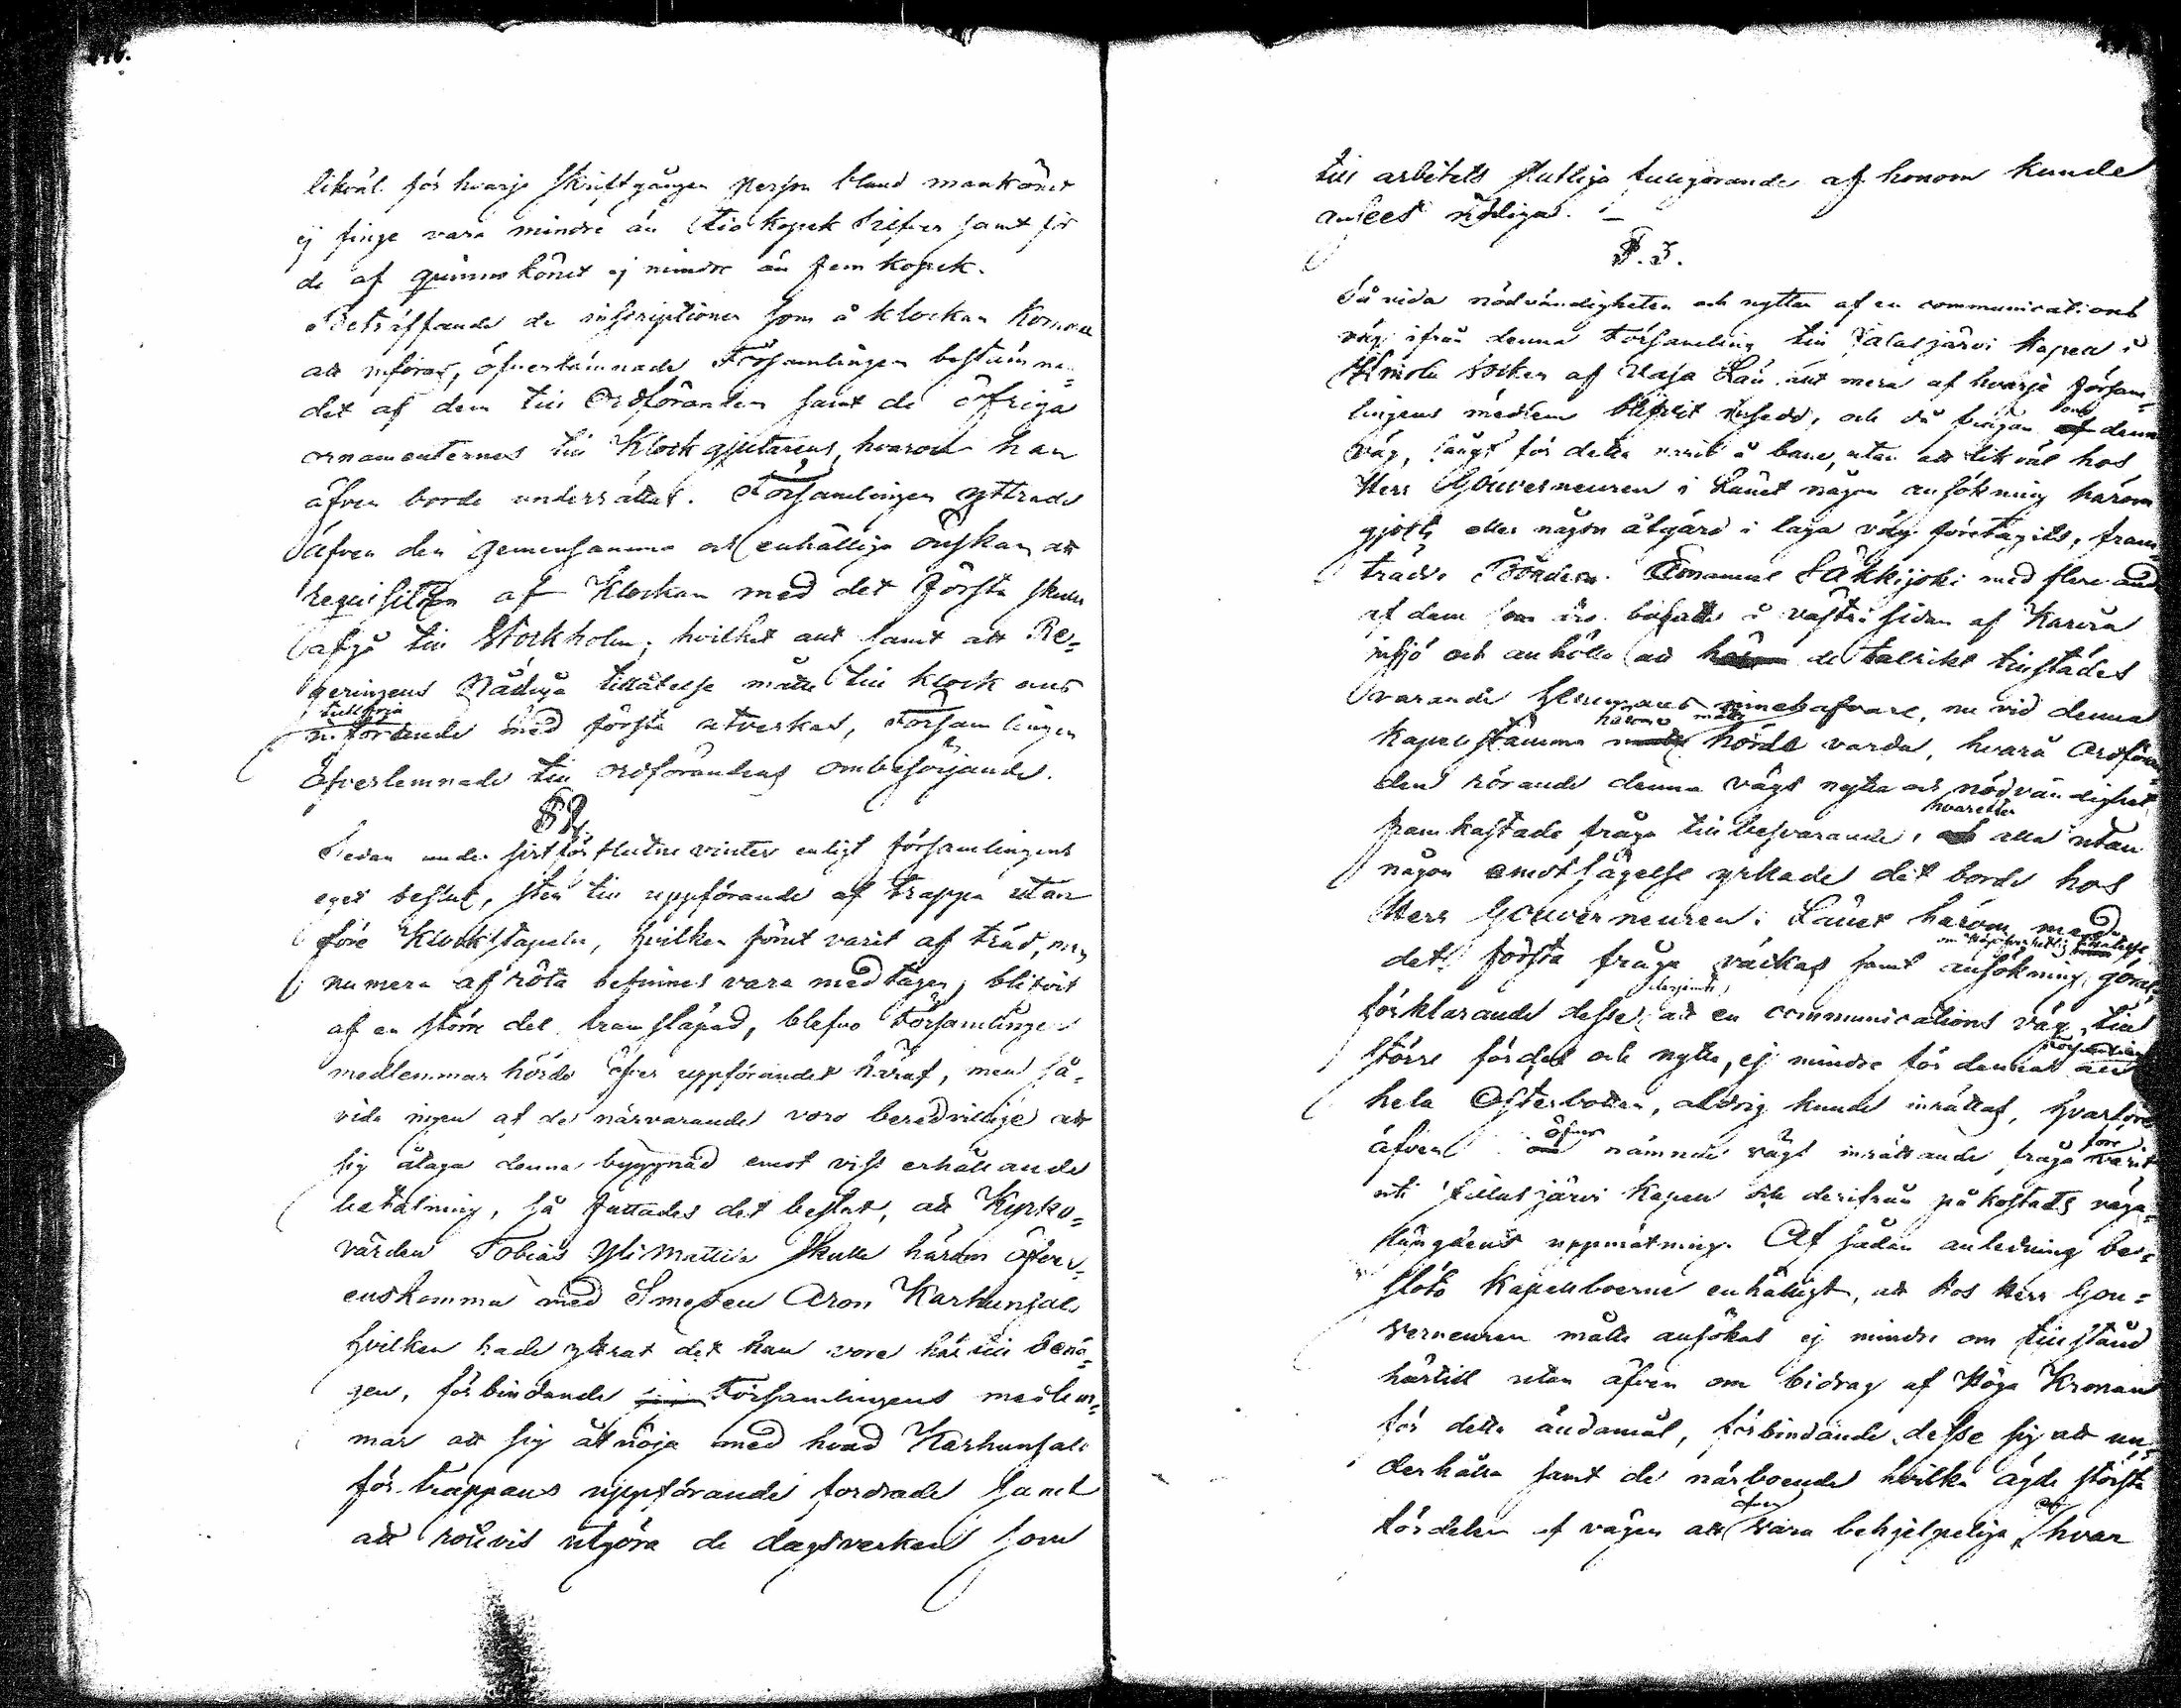 likväl för hvarje skriftgången person bland mankönet
ej finge vara mindre än tio kopek Silfver samt för
de af qvinnokönet ej mindre än fem kopek.
Beträffande de inscriptioner som å klockan komma
att införas, öfverlämnade Församlingen bestämman¬
det af dem till Ordföranden samt de öfriga
ornamenternes till Klockgjutarens, hvarom han
äfven borde underrättas. Församlingen yttrade
äfven den gemensamma och enhälliga önskan, att
requisition af Klockan med det första skulle
afgå till Stockholm; hvilket allt samt att Re¬
geringens Nådiga tillåtelse måtte till klockans
införande med första utverkas, Församlingen
öfverlemnade till ordförandens ombesörjande.
§ 2.
Sedan under sistförflutne vinter enligt församlingens
eget beslut, sten till uppförande af trappa utan
före Klockstapeln, hvilken förut varit af träd, men
numera af röta befinnes vara medtagen, blifvit
af en större del framsläpad, blefvo Församlingens
medlemmar hörde öfver uppförandet häraf, men så¬
vida ingen af de närvarande voro beredvillige att
sig åtaga denna byggnad emot viss erhållande
betalning, så fattades det beslut, att Kyrko¬
värden Tobias Ylimattila skulle härom öfver¬
enskomma med Smeden Aron Karhunsalo
hvilken hade yttrat det han vore härtill benä¬
gen, förbindande Församlingens medlem¬
mar att sig åtnöja med hvad Karhunsalo
för trappans uppförande fordrade samt
att rotevis utgöra de dagsverken som
till arbetets slutliga fullgörande af honom kunde
anses nödiga. —
§. 3.
Så vida nödvändigheten och nyttan af en communications
väg ifrån denna Församling till Jalasjärvi Kapell i
Ilmola Socken af Vasa Län allt mera af hvarje Försam¬
lingens medlem blifvit insedd, och då frågan om denna
väg, långt för detta varit å bane, utan att likväl hos
Herr Gouverneuren i Länet någon ansökning härom
gjorts eller någon åtgärd i laga väg företagits, fram¬
trädde Bonden Emanuel Säkkijoki med flere andre
af dem som äro bosatte å vestra sidan af Karvia
insjö och anhöllo att de talrikt tillstädes
varande Hemmans innehafvare, nu vid denna
Kapellstämma härom måtte hörde varda, hvarå Ordföran¬
den rörande denna vägs nytta och nödvändighet
framkastade fråga till besvarande, hvarefter alla utan
någon emotsägelse yrkade det borde hos
Herr Gouverneuren i Länet härom med
det första fråga väckas samt ansökning göras,
förklarande desse derjemte, att en communications väg, till
större fördel och nytta, ej mindre för denna Församling än
hela Österbotten, aldrig kunde inrättas, hvarföre
äfven öfver nämnde vägs inrättande fråga före varit
uti Jalasjärvi Kapell och derifrån påkostats väga¬
längdens uppmätning. Af sådan anledning be¬
slöto Kapellboerne enhälligt, att hos Herr Gou¬
verneuren måtte ansökas ej mindre om tillstånd
härtill utan äfven om bidrag af Höga Kronan
för detta ändamål, förbindande desse sig att un¬
derhålla samt de närboende hvilka ägde största
fördelen af vägen att äfven vara behjelpeliga, hvar